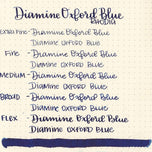 Diamine Oxford Blue
Rhodia
Extra Fine - Diamine Oxford Blue
Diamine Oxford Blue
Fine - Diamine Oxford Blue
Diamine Oxford Blue
Medium - Diamine Oxford Blue
Diamine Oxford Blue
Broad - Diamine Oxford Blue
Diamine Oxford Blue
Flex - Diamine Oxford Blue
Diamine Oxford Blue